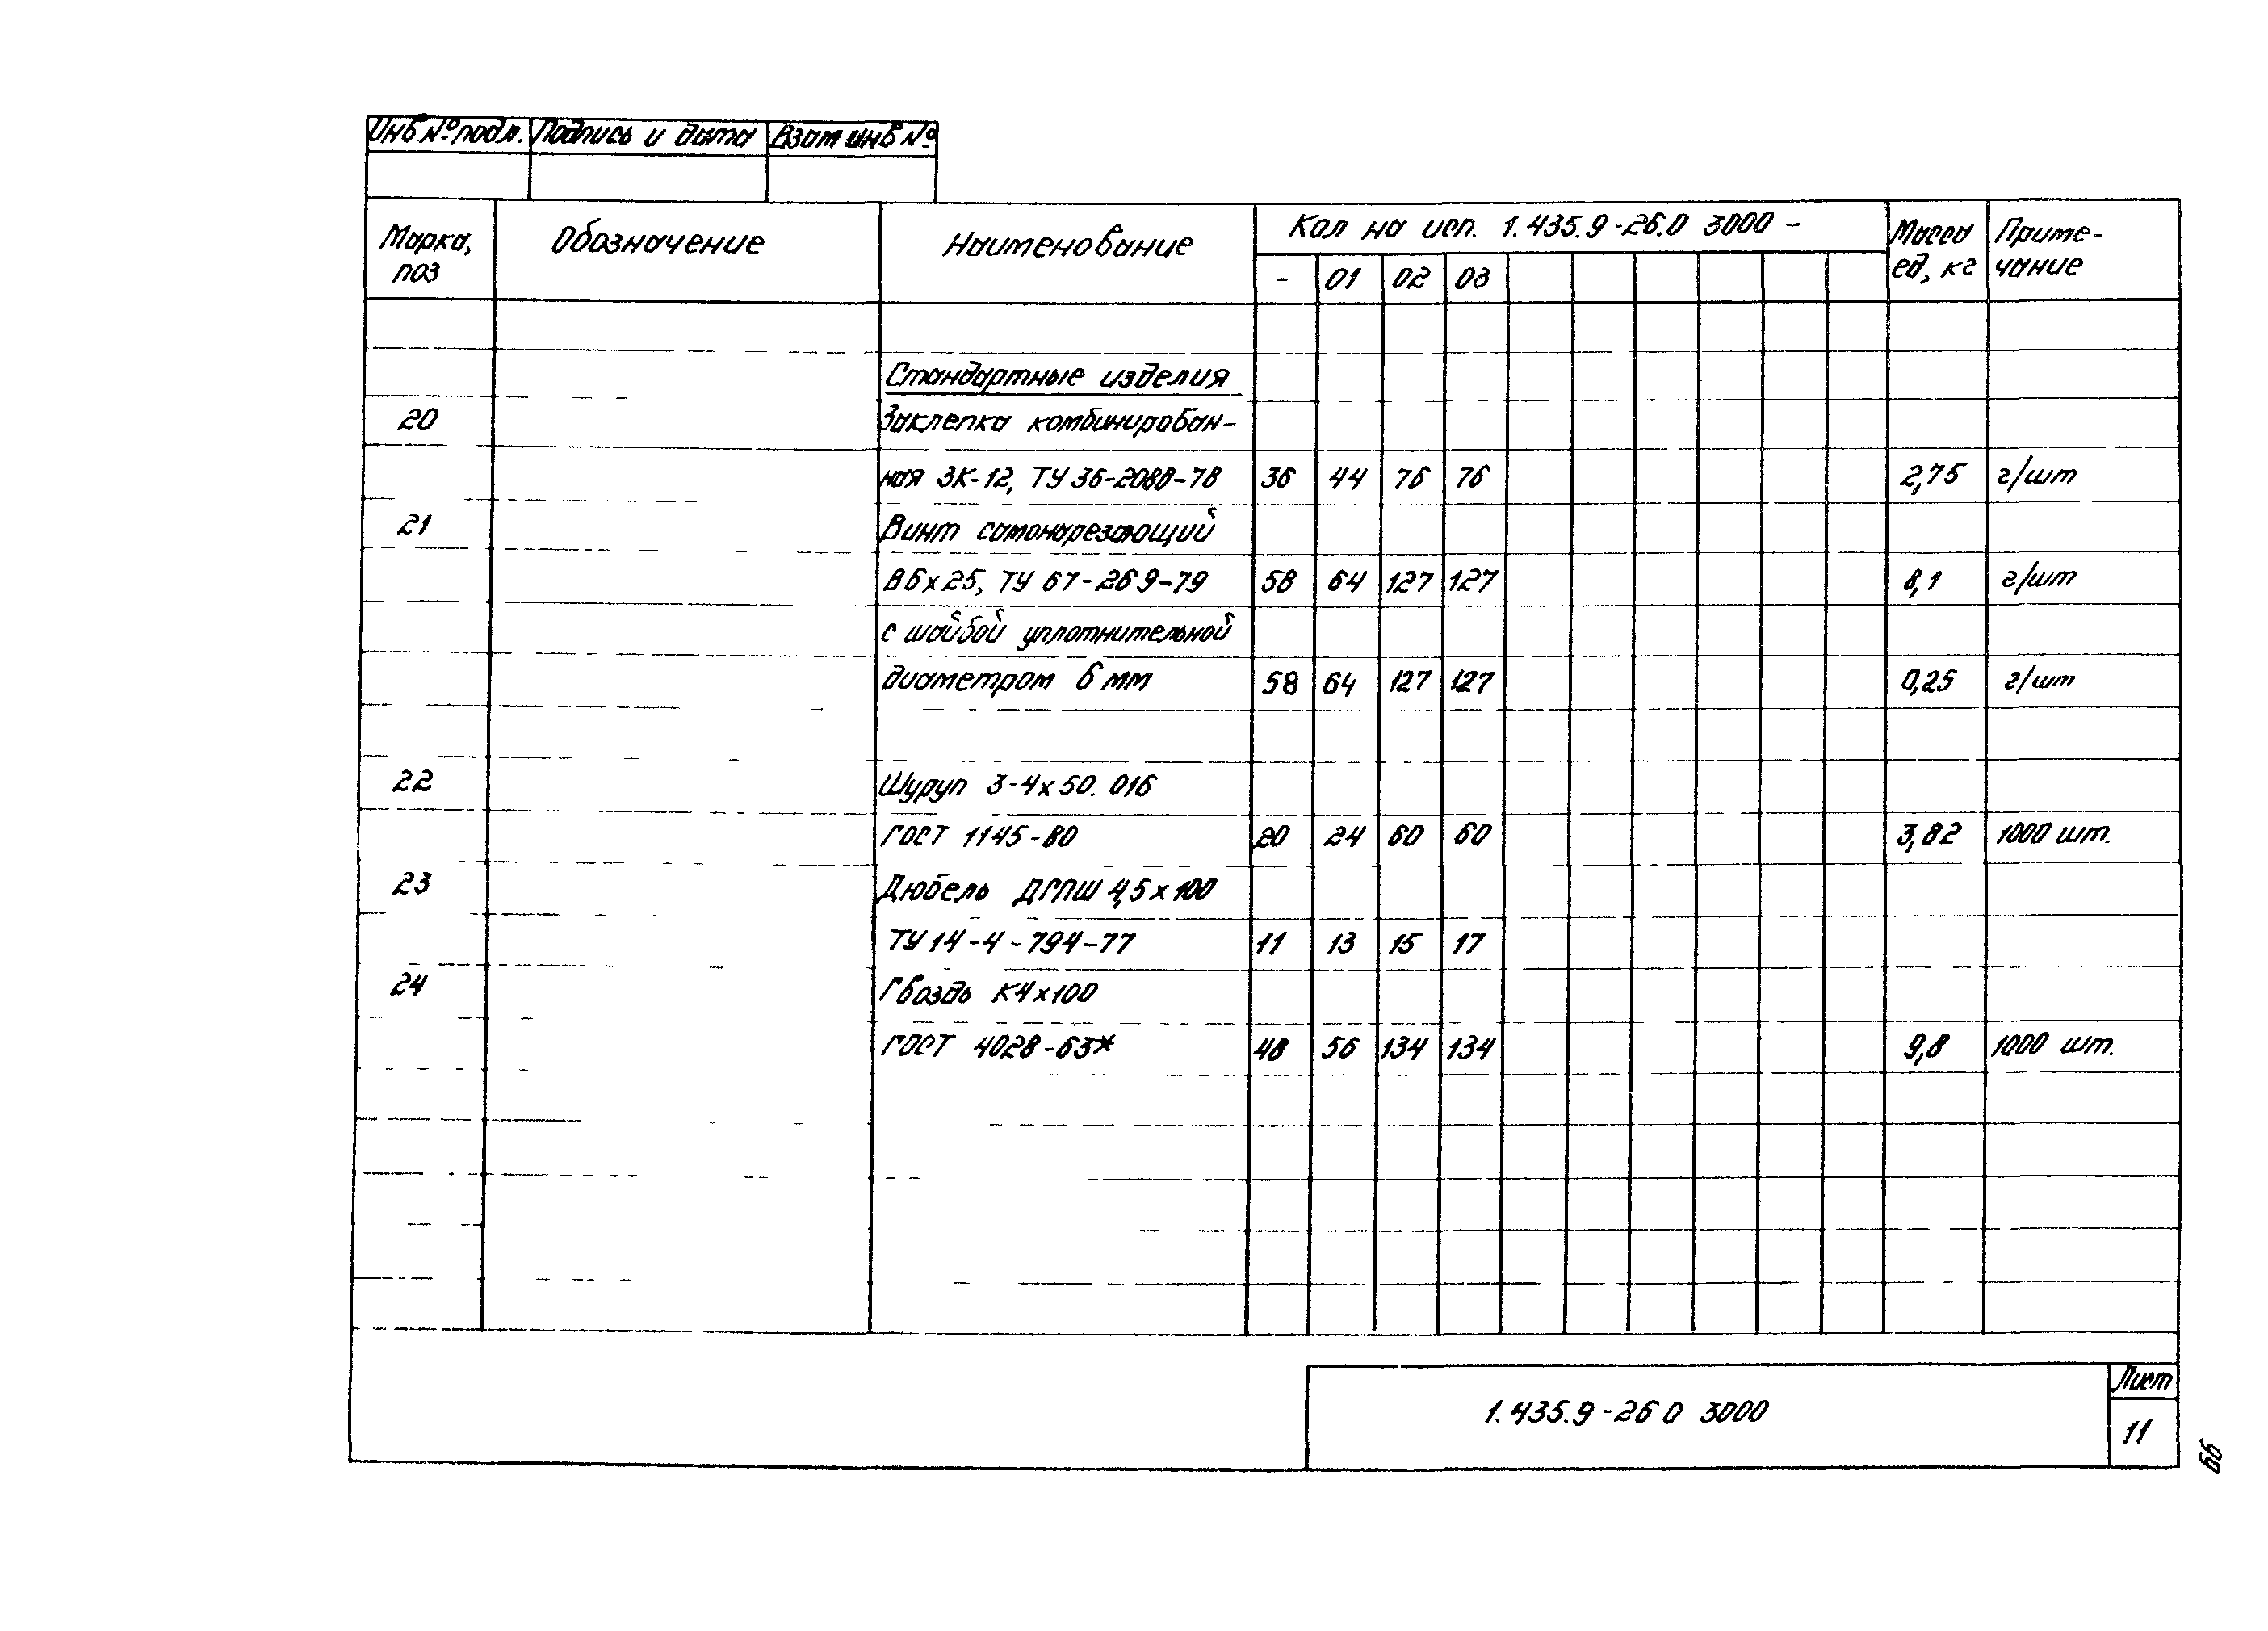 Инв № подл. Подпись и дата Взам инв №
Марка, поз Обозначение Наименование Кол на исп. 1.435.9-26.0 3000 - Масса ед, кг Приме-чание
- 01 02 03
Стандартные изделия
20 Заклепка комбинирован-
ная ЗК-12, ТУ 36-2088-78 36 44 76 76 2,75 г/шт
21 Винт самонарезающий
В6х25, ТУ 67-269-79 58 64 127 127 8,1 г/шт
с шайбой уплотнительной
диаметром 6 мм 58 64 127 127 0,25 г/шт
22 Шуруп 3-4х50. 016
ГОСТ 1145-80 20 24 60 60 3,82 1000 шт.
23 Дюбель ДГПШ 4,5х100
ТУ 14-4-794-77 11 13 15 17
24 Гвоздь К4х100
ГОСТ 4028-63* 48 56 134 134 9,8 1000 шт.
1.435.9-26 0 3000
Лист
11
66